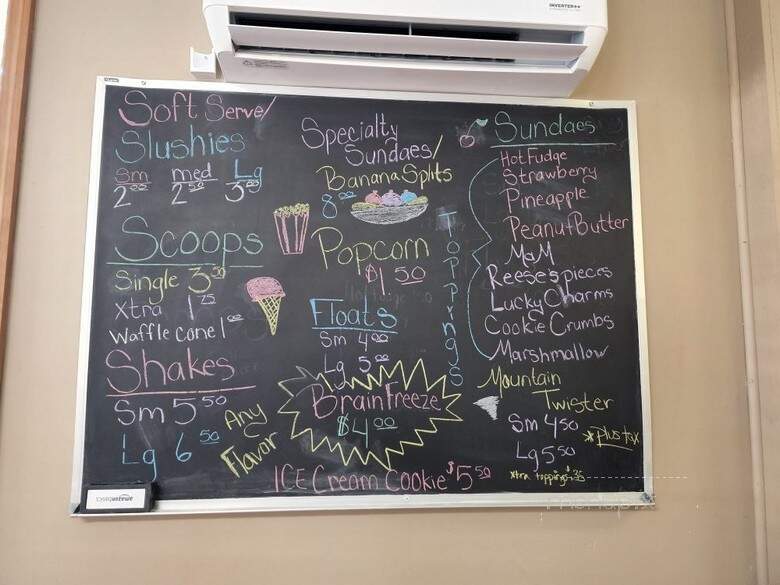 INVERTER++
Soft Serve/
Slushies
Sm med Lg
2.00 2.50 3.00
Scoops
Single 3.50
Xtra 1.25
Waffle cone 1.00
Shakes
Sm 5.50
Lg 6.50
Any
Flavor
Specialty
Sundaes/
Banana Splits
8.00
Popcorn
$1.50
Floats
Sm 4.00
Lg 5.00
Brain Freeze
$4.00
ICE Cream Cookie $5.50
Toppings
Sundaes
Hot Fudge
Strawberry
Pineapple
Peanut Butter
M&M
Reese's pieces
Lucky Charms
Cookie Crumbs
Marshmallow
Mountain
Twister
Sm 4.50
Lg 5.50
*Plus tax
Xtra toppings